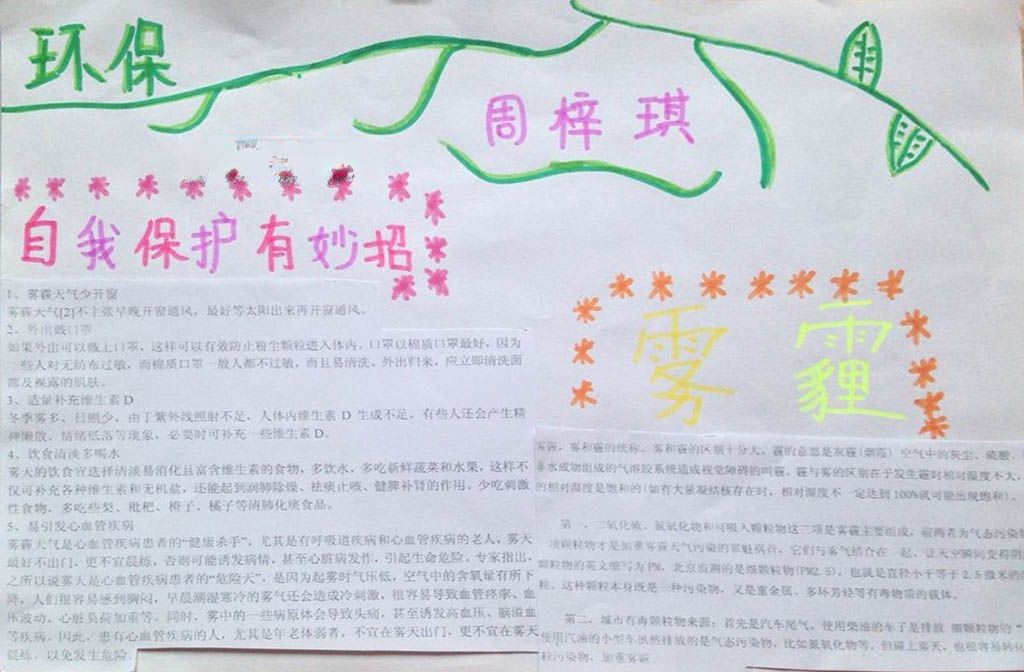 环保
周梓琪
自我保护有妙招
1、雾霾天气少开窗
雾霾天气[2]不主张早晚开窗通风，最好等太阳出来再开窗通风。
2、外出戴口罩
如果外出可以戴上口罩，这样可以有效防止粉尘颗粒进入体内。口罩以棉质口罩最好，因为
一些人对无纺布过敏，而棉质口罩一般人都不过敏，而且易清洗。外出归来，应立即清洗面
部及裸露的肌肤。
3、适量补充维生素 D
冬季雾多、日照少，由于紫外线照射不足，人体内维生素 D 生成不足，有些人还会产生精
神懒散、情绪低落等现象，必要时可补充一些维生素 D。
4、饮食清淡多喝水
雾天的饮食宜选择清淡易消化且富含维生素的食物，多饮水，多吃新鲜蔬菜和水果，这样不
仅可补充各种维生素和无机盐，还能起到润肺除燥、祛痰止咳、健脾补肾的作用。少吃刺激
性食物，多吃些梨、枇杷、橙子、橘子等清肺化痰食品。
5、易引发心血管疾病
雾霾天气是心血管疾病患者的“健康杀手”，尤其是有呼吸道疾病和心血管疾病的老人，雾天
最好不出门，更不宜晨练，否则可能诱发病情，甚至心脏病发作，引起生命危险。专家指出，
之所以说雾天是心血管疾病患者的“危险天”，是因为起雾时气压低，空气中的含氧量有所下
降，人们很容易感到胸闷，早晨潮湿寒冷的雾气还会造成冷刺激，很容易导致血管痉挛、血
压波动、心脏负荷加重等。同时，雾中的一些病原体会导致头痛，甚至诱发高血压、脑溢血
等疾病。因此，患有心血管疾病的人，尤其是年老体弱者，不宜在雾天出门，更不宜在雾天
晨练，以免发生危险。
雾霾
雾霾，雾和霾的统称。雾和霾的区别十分大。霾的意思是灰霾(烟霞) 空气中的灰尘、硫酸、
非水成物组成的气溶胶系统造成视觉障碍的叫霾。霾与雾的区别在于发生霾时相对湿度不大，
的相对湿度是饱和的(如有大量凝结核存在时，相对湿度不一定达到 100%就可能出现饱和)。
第一，二氧化硫、氮氧化物和可吸入颗粒物这三项是雾霾主要组成，前两者为气态污染
项颗粒物才是加重雾霾天气污染的罪魁祸首。它们与雾气结合在一起，让天空瞬间变得阴
颗粒物的英文缩写为 PM，北京监测的是细颗粒物(PM2.5)，也就是直径小于等于 2.5 微米的
粒。这种颗粒本身既是一种污染物，又是重金属、多环芳烃等有毒物质的载体。
第二，城市有毒颗粒物来源：首先是汽车尾气。使用柴油的车子是排放 细颗粒物的“
使用汽油的小型车虽然排放的是气态污染物，比如氮氧化物等，但碰上雾天，也很容易转化
粒污染物，加重雾霾。